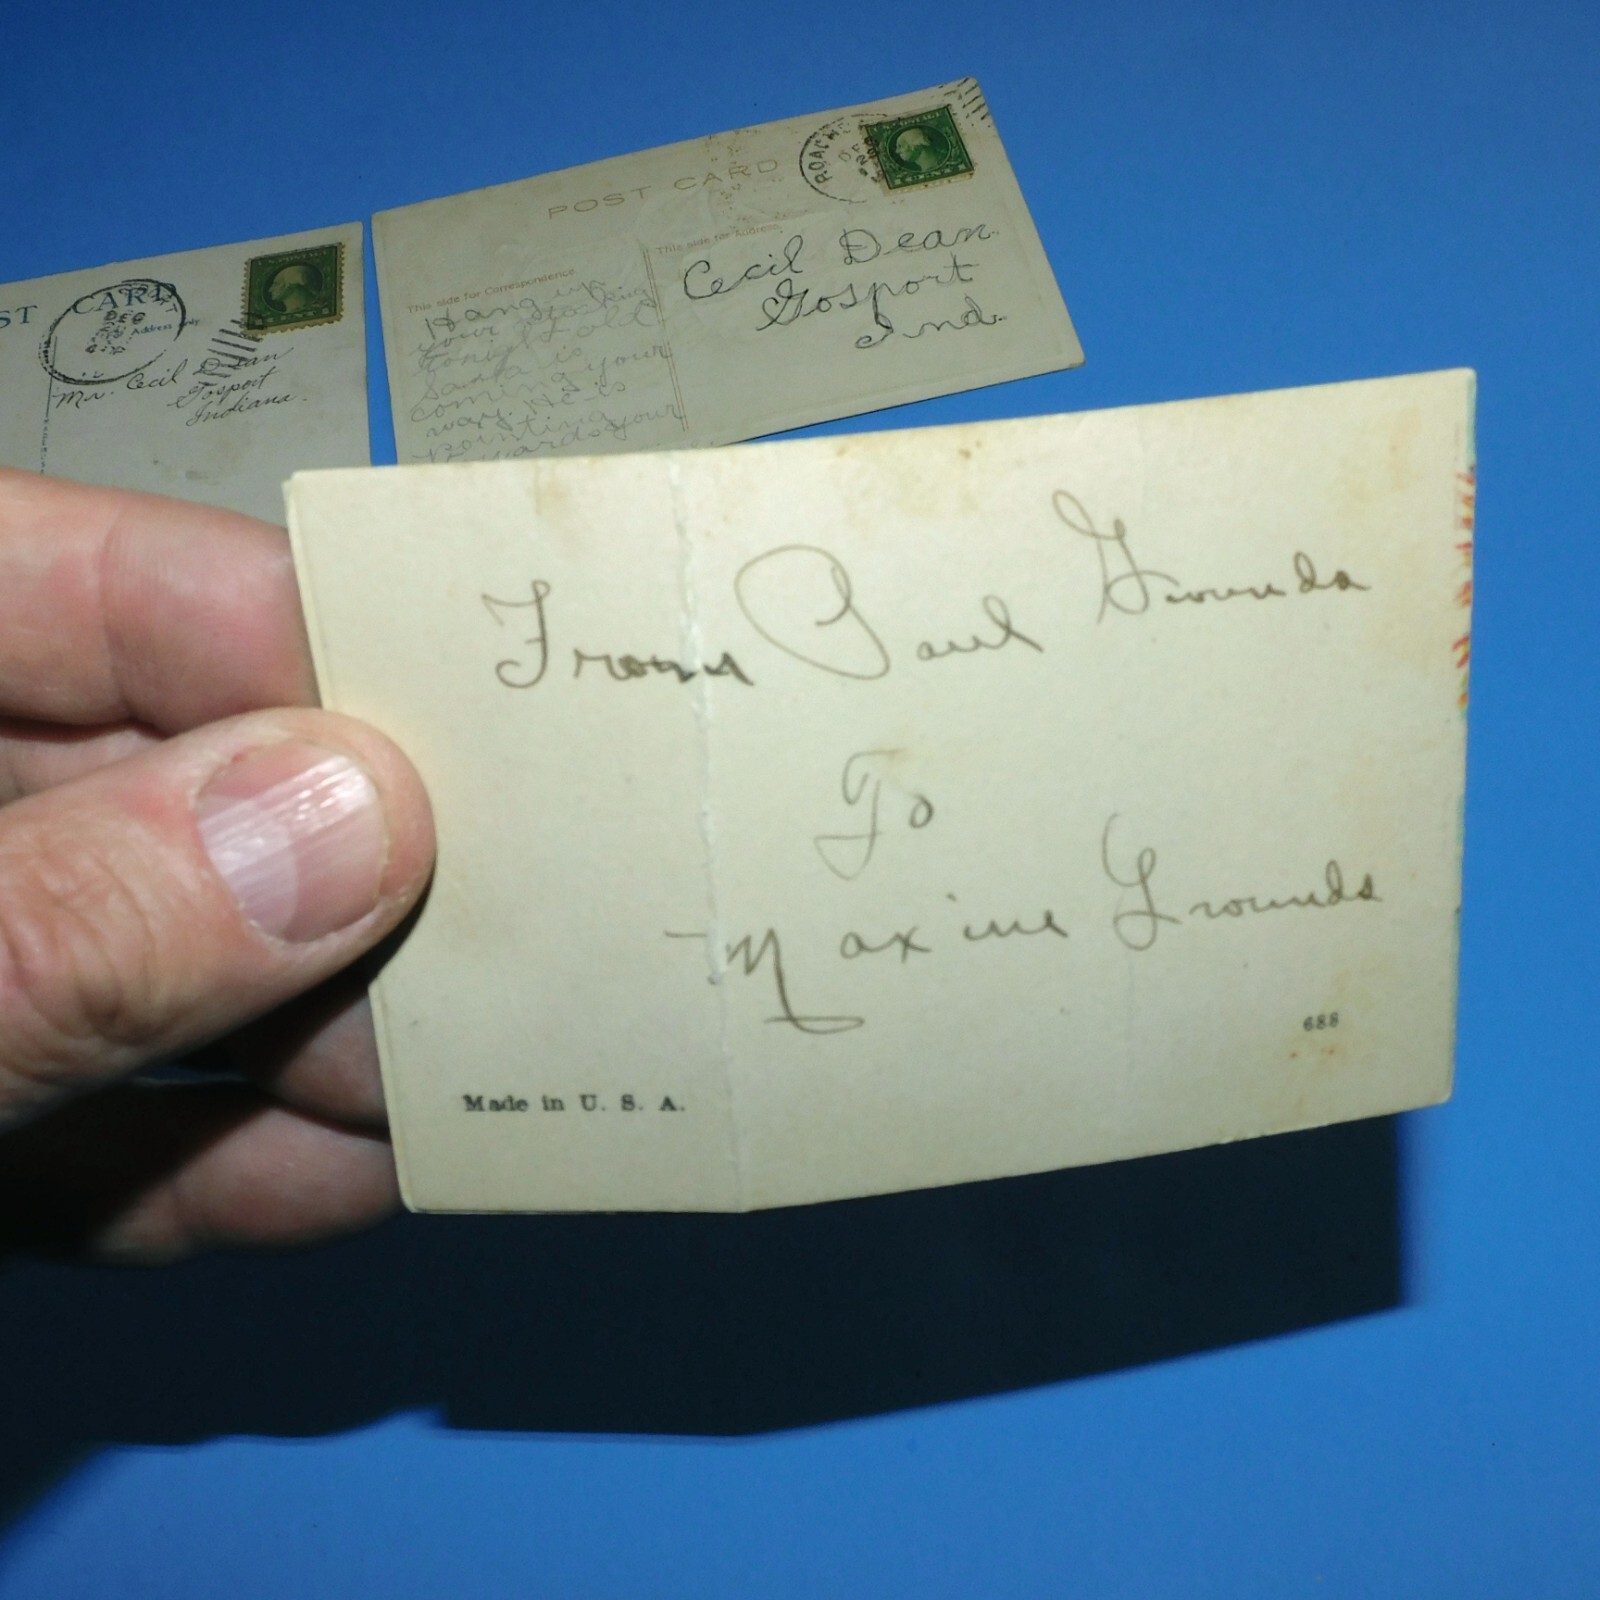 POST CARD
ROACH
U.S. POSTAGE
This side for Correspondence
This side for Address
Hang up
your stocking
tonight old
Santa is
coming your
way. He is
pointing
towards your
Cecil Dean.
Gosport
Ind.
ST CARD
Address only
DEC
Mr. Cecil Dean
Gosport
Indiana.
From Paul Grounds
To
Maxine Grounds
688
Made in U. S. A.